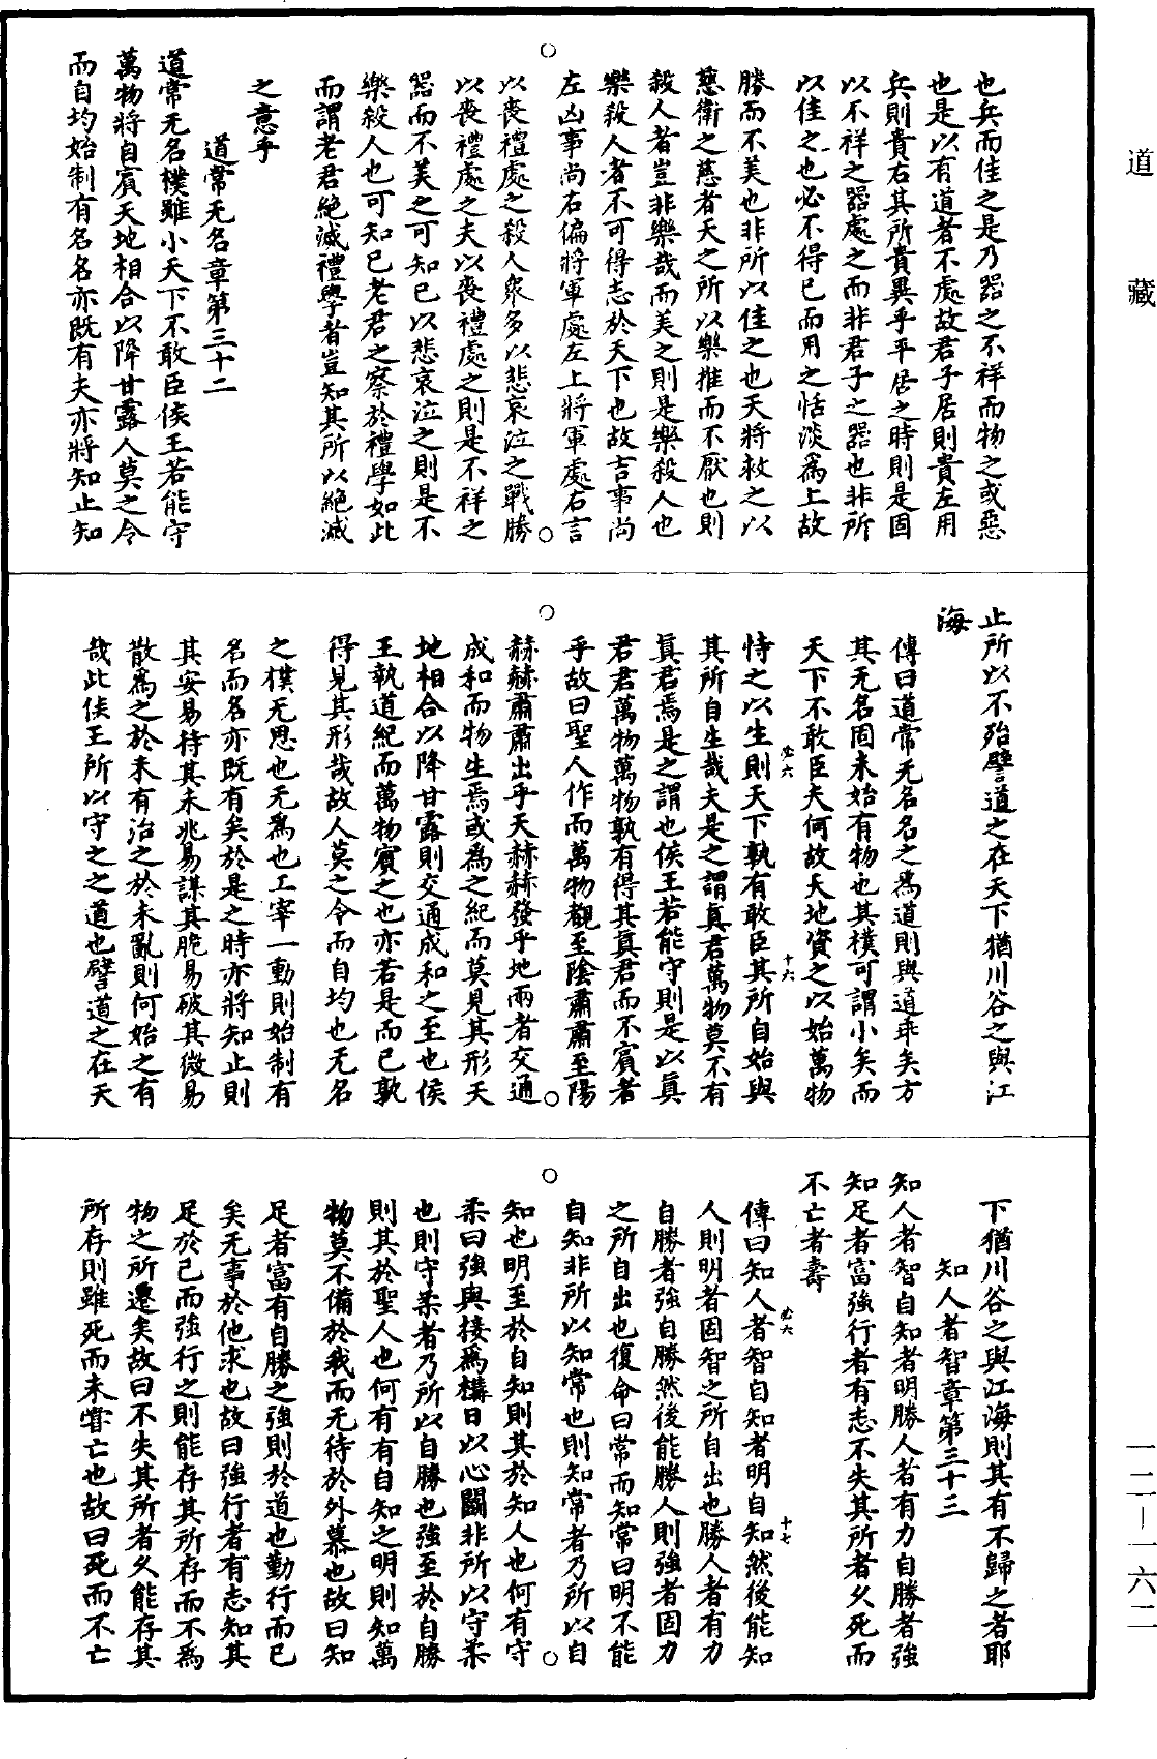 道藏
也兵而佳之是乃器之不祥而物之或惡
也是以有道者不處故君子居則貴左用
兵則貴右其所貴異乎平居之時則是固
以不祥之器處之而非君子之器也非所
以佳之也必不得已而用之恬淡爲上故
勝而不美也非所以佳之也天將救之以
慈衛之慈者天之所以樂推而不厭也則
殺人者豈非樂哉而美之則是樂殺人也
樂殺人者不可得志於天下也故吉事尚
左凶事尚右偏將軍處左上將軍處右言
以喪禮處之殺人衆多以悲哀泣之戰勝
以喪禮處之夫以喪禮處之則是不祥之
器而不美之可知已以悲哀泣之則是不
樂殺人也可知已老君之察於禮學如此
而謂老君絕滅禮學者豈知其所以絕滅
之意乎
道常无名章第三十二
道常无名樸雖小天下不敢臣侯王若能守
萬物將自賓天地相合以降甘露人莫之令
而自均始制有名名亦既有夫亦將知止知
止所以不殆譬道之在天下猶川谷之與江
海
傳曰道常无名名之爲道則與道乖矣方
其无名固未始有物也其樸可謂小矣而
天下不敢臣夫何故天地資之以始萬物
恃之以生則天下孰有敢臣其所自始與
必六
十六
其所自生哉夫是之謂眞君萬物莫不有
眞君焉是之謂也侯王若能守則是以眞
君君萬物萬物孰有得其眞君而不賓者
乎故曰聖人作而萬物覩至陰肅肅至陽
赫赫肅肅出乎天赫赫發乎地兩者交通
成和而物生焉或爲之紀而莫見其形天
地相合以降甘露則交通成和之至也侯
王執道紀而萬物賓之也亦若是而已孰
得見其形哉故人莫之令而自均也无名
之樸无思也无爲也工宰一動則始制有
名而名亦既有矣於是之時亦將知止則
其安易持其未兆易謀其脆易破其微易
散爲之於未有治之於未亂則何始之有
哉此侯王所以守之之道也譬道之在天
下猶川谷之與江海則其有不歸之者耶
知人者智章第三十三
知人者智自知者明勝人者有力自勝者強
知足者富強行者有志不失其所者久死而
不亡者壽
傳曰知人者智自知者明自知然後能知
必六
十七
人則明者固智之所自出也勝人者有力
自勝者強自勝然後能勝人則強者固力
之所自出也復命曰常而知常曰明不能
自知非所以知常也則知常者乃所以自
知也明至於自知則其於知人也何有守
柔曰強與接爲構日以心鬭非所以守柔
也則守柔者乃所以自勝也強至於自勝
則其於聖人也何有有自知之明則知萬
物莫不備於我而无待於外慕也故曰知
足者富有自勝之強則於道也勤行而已
矣无事於他求也故曰強行者有志知其
足於己而強行之則能存其所存而不爲
物之所遷矣故曰不失其所者久能存其
所存則雖死而未嘗亡也故曰死而不亡
一二—一六二